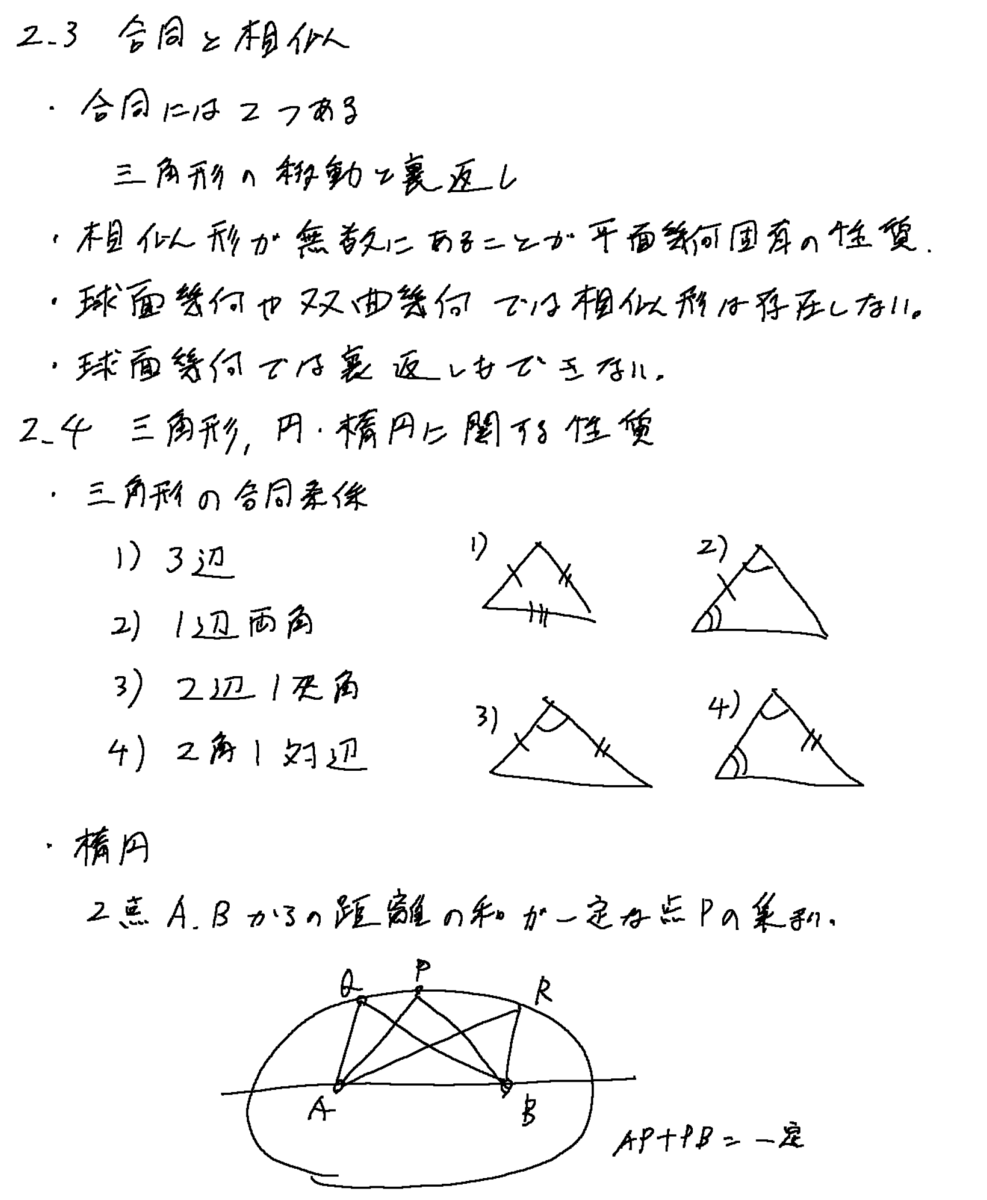 2-3 合同と相似
・合同には2つある
三角形の移動と裏返し
・相似形が無数にあることが平面幾何固有の性質.
・球面幾何や双曲幾何では相似形は存在しない。
・球面幾何では裏返しもできない。
2-4 三角形, 円・楕円に関する性質
・三角形の合同条件
1) 3辺
2) 1辺両角
3) 2辺1夾角
4) 2角1対辺
1)
2)
3)
4)
・楕円
2点A.Bからの距離の和が一定な点Pの集まり。
Q P R
A B
AP+PB=一定